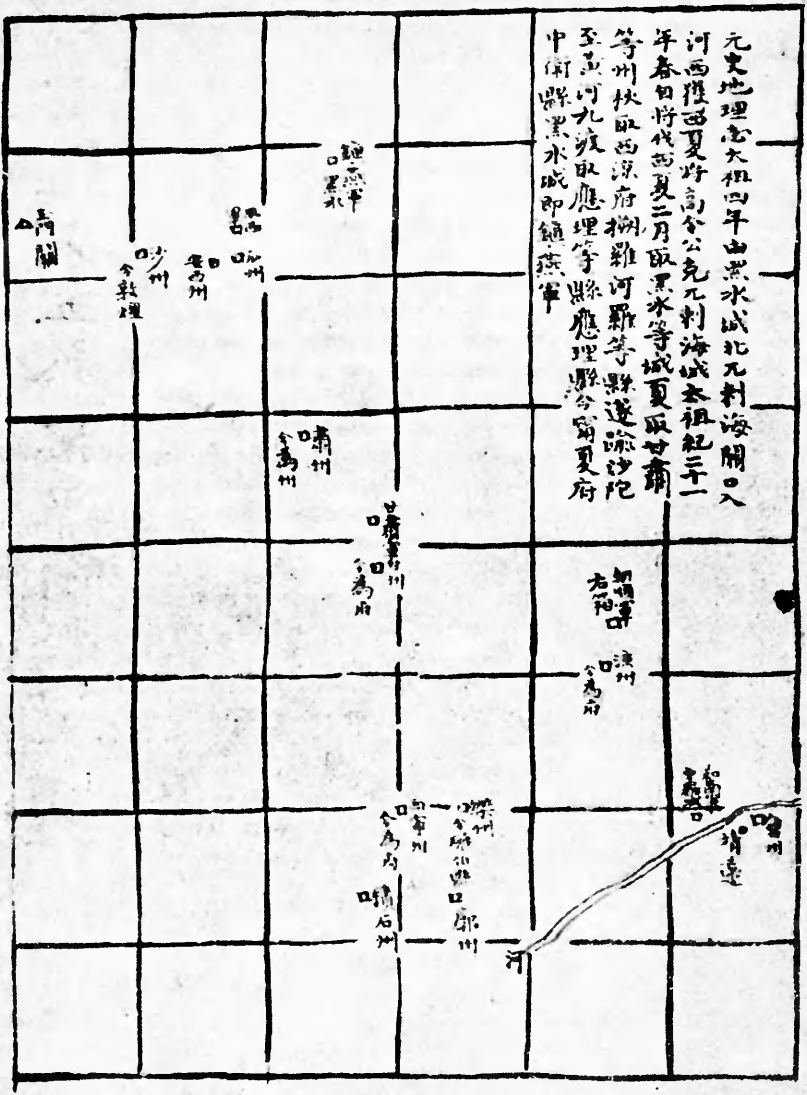 元史地理志太祖四年由黑水城北兀剌海關口入
河西獲西夏將高令公克兀剌海城太祖紀二十一
年春自將伐西夏二月取黑水等城夏取甘肅
等州秋取西涼府搠羅河羅等縣遂踰沙陀
至黃河九渡取應理等縣應理縣今甯夏府
中衛縣黑水城即鎮燕軍
鎮燕軍
黑水
玉關
沙州
今敦煌
瓜州
安西州
肅州
今為州
甘肅軍甘州
今為府
右廂
涼州
今為府
會州
靖遠
西甯州
今為府
樂州
積石州
廓州
河